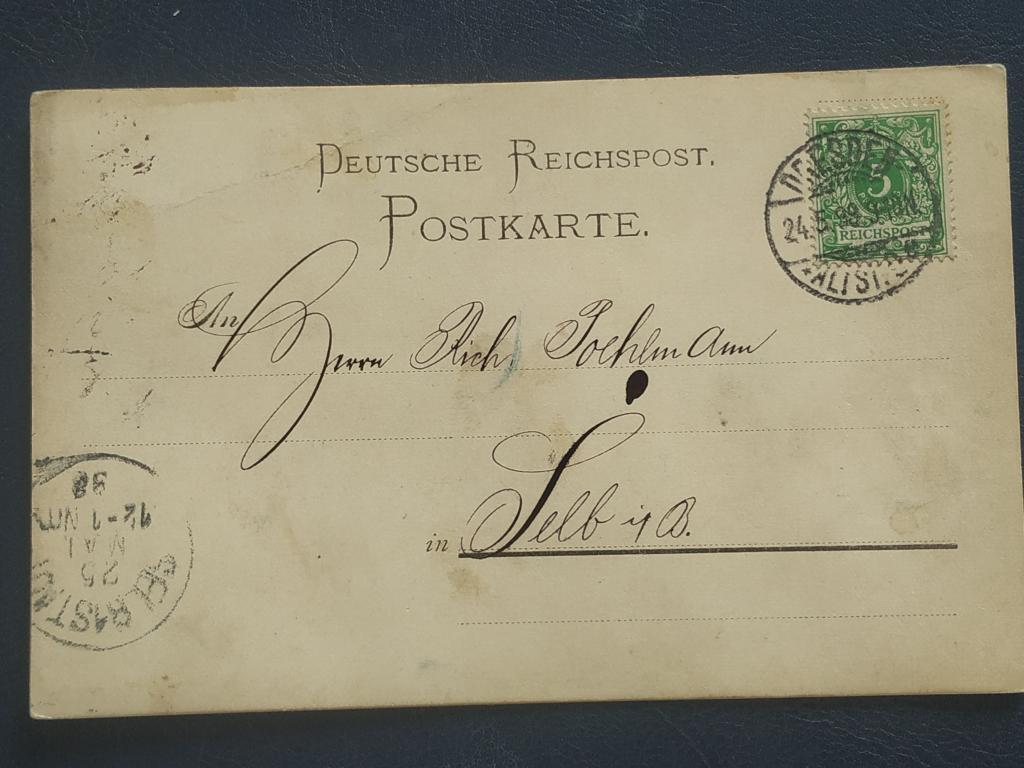 DEUTSCHE REICHSPOST.
POSTKARTE.
5
REICHSPOST
DRESDEN
24.5.98
ALTST.
An Herrn Rich. Pochlmann
in Selb i/B.
25
MAI
12-1 NM
98